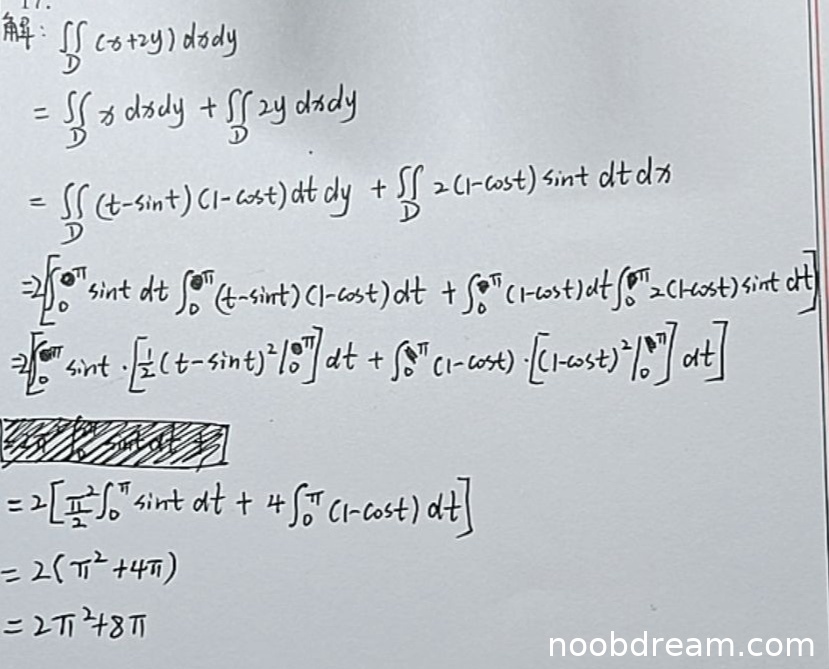 17.
解: ∬_D (x+2y) dxdy
= ∬_D x dxdy + ∬_D 2y dxdy
= ∬_D (t-sint)(1-cost)dt dy + ∬_D 2(1-cost) sint dt dx
=2[∫_0^π sint dt ∫_0^π (t-sint)(1-cost)dt + ∫_0^π (1-cost)dt ∫_0^π 2(1-cost) sint dt]
=2[∫_0^π sint · [1/2 (t-sint)^2 |_0^π] dt + ∫_0^π (1-cost) · [(1-cost)^2 |_0^π] dt]
= 2[π^2/2 ∫_0^π sint dt + 4∫_0^π (1-cost) dt]
= 2(π^2+4π)
= 2π^2+8π
noobdream.com